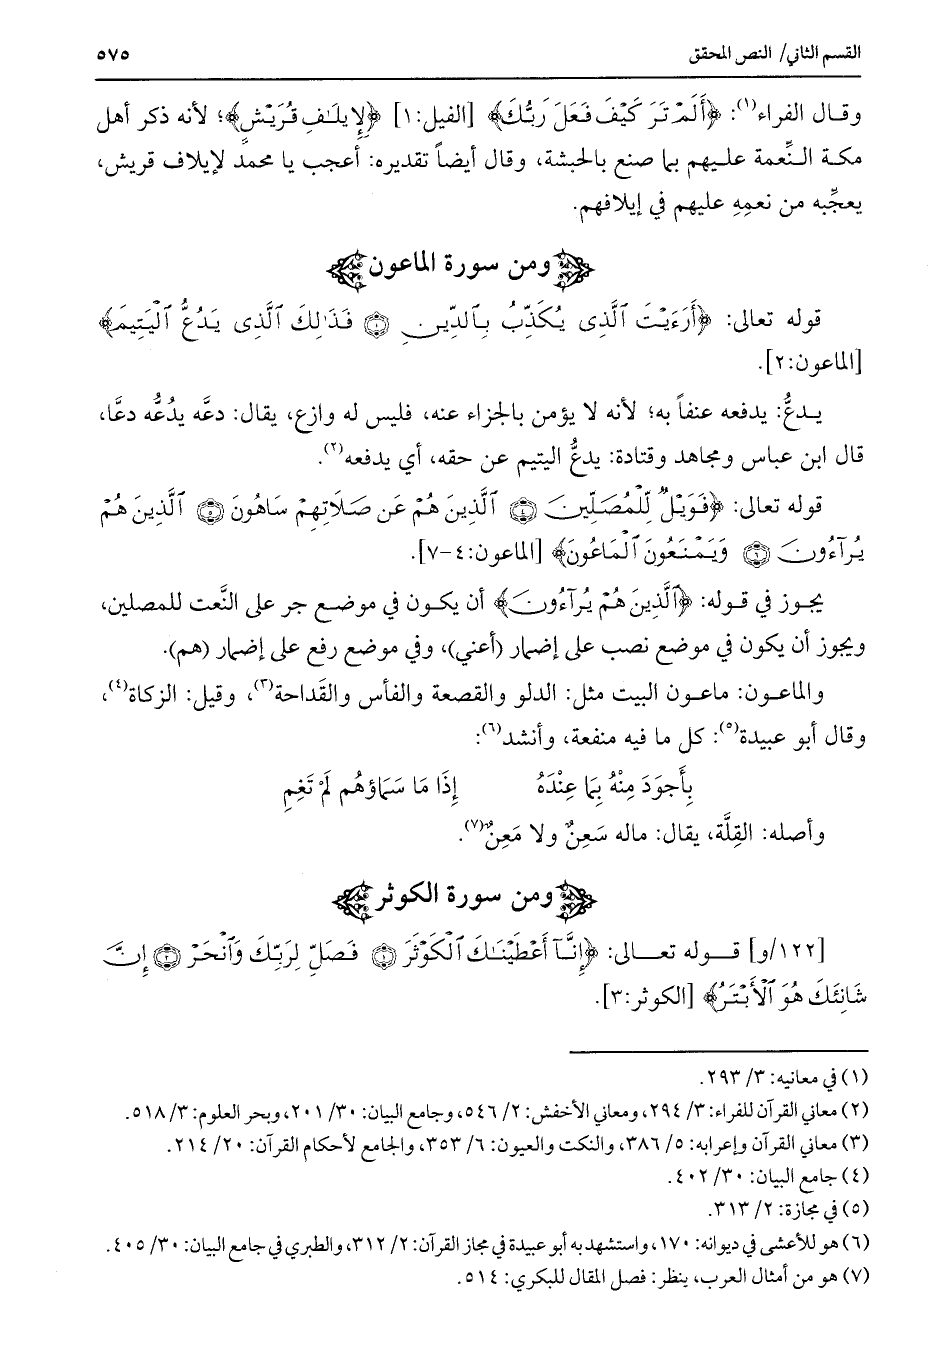 القسم الثاني/ النص المحقق ٥٧٥
وقال الفراء(١): ﴿أَلَمْ تَرَ كَيْفَ فَعَلَ رَبُّكَ﴾ [الفيل:١] ﴿لِإِيلَافِ قُرَيْشٍ﴾؛ لأنه ذكر أهل
مكة النِّعمة عليهم بما صنع بالحبشة، وقال أيضاً تقديره: أعجب يا محمد لإيلاف قريش،
يعجِّبه من نعمِهِ عليهم في إيلافهم.
ومن سورة الماعون
قوله تعالى: ﴿أَرَءَيْتَ ٱلَّذِى يُكَذِّبُ بِٱلدِّينِ ۝١ فَذَٰلِكَ ٱلَّذِى يَدُعُّ ٱلْيَتِيمَ﴾
[الماعون:٢].
يدعُّ: يدفعه عنفاً به؛ لأنه لا يؤمن بالجزاء عنه، فليس له وازع، يقال: دعَّه يدُعُّه دعَّا،
قال ابن عباس ومجاهد وقتادة: يدعُّ اليتيم عن حقه، أي يدفعه(٢).
قوله تعالى: ﴿فَوَيْلٌ لِّلْمُصَلِّينَ ۝٤ ٱلَّذِينَ هُمْ عَن صَلَاتِهِمْ سَاهُونَ ۝٥ ٱلَّذِينَ هُمْ
يُرَآءُونَ ۝٦ وَيَمْنَعُونَ ٱلْمَاعُونَ﴾ [الماعون:٤-٧].
يجوز في قوله: ﴿ٱلَّذِينَ هُمْ يُرَآءُونَ﴾ أن يكون في موضع جر على النَّعت للمصلين،
ويجوز أن يكون في موضع نصب على إضمار (أعني)، وفي موضع رفع على إضمار (هم).
والماعون: ماعون البيت مثل: الدلو والقصعة والفأس والقَداحة(٣)، وقيل: الزكاة(٤)،
وقال أبو عبيدة(٥): كل ما فيه منفعة، وأنشد(٦):
بِأَجوَدَ مِنْهُ بِمَا عِنْدَهُ إِذَا مَا سَمَاؤهُم لَمْ تَغِمِ
وأصله: القِلَّة، يقال: ماله سَعِنٌ ولا مَعِنٌ(٧).
ومن سورة الكوثر
[١٢٢/و] قوله تعالى: ﴿إِنَّآ أَعْطَيْنَٰكَ ٱلْكَوْثَرَ ۝١ فَصَلِّ لِرَبِّكَ وَٱنْحَرْ ۝٢ إِنَّ
شَانِئَكَ هُوَ ٱلْأَبْتَرُ﴾ [الكوثر:٣].
(١) في معانيه: ٣/ ٢٩٣.
(٢) معاني القرآن للفراء: ٣/ ٢٩٤، ومعاني الأخفش: ٢/ ٥٤٦، وجامع البيان: ٣٠/ ٢٠١، وبحر العلوم: ٣/ ٥١٨.
(٣) معاني القرآن وإعرابه: ٥/ ٣٨٦، والنكت والعيون: ٦/ ٣٥٣، والجامع لأحكام القرآن: ٢٠/ ٢١٤.
(٤) جامع البيان: ٣٠/ ٤٠٢.
(٥) في مجازة: ٢/ ٣١٣.
(٦) هو للأعشى في ديوانه: ١٧٠، واستشهد به أبو عبيدة في مجاز القرآن: ٢/ ٣١٢، والطبري في جامع البيان: ٣٠/ ٤٠٥.
(٧) هو من أمثال العرب، ينظر: فصل المقال للبكري: ٥١٤.